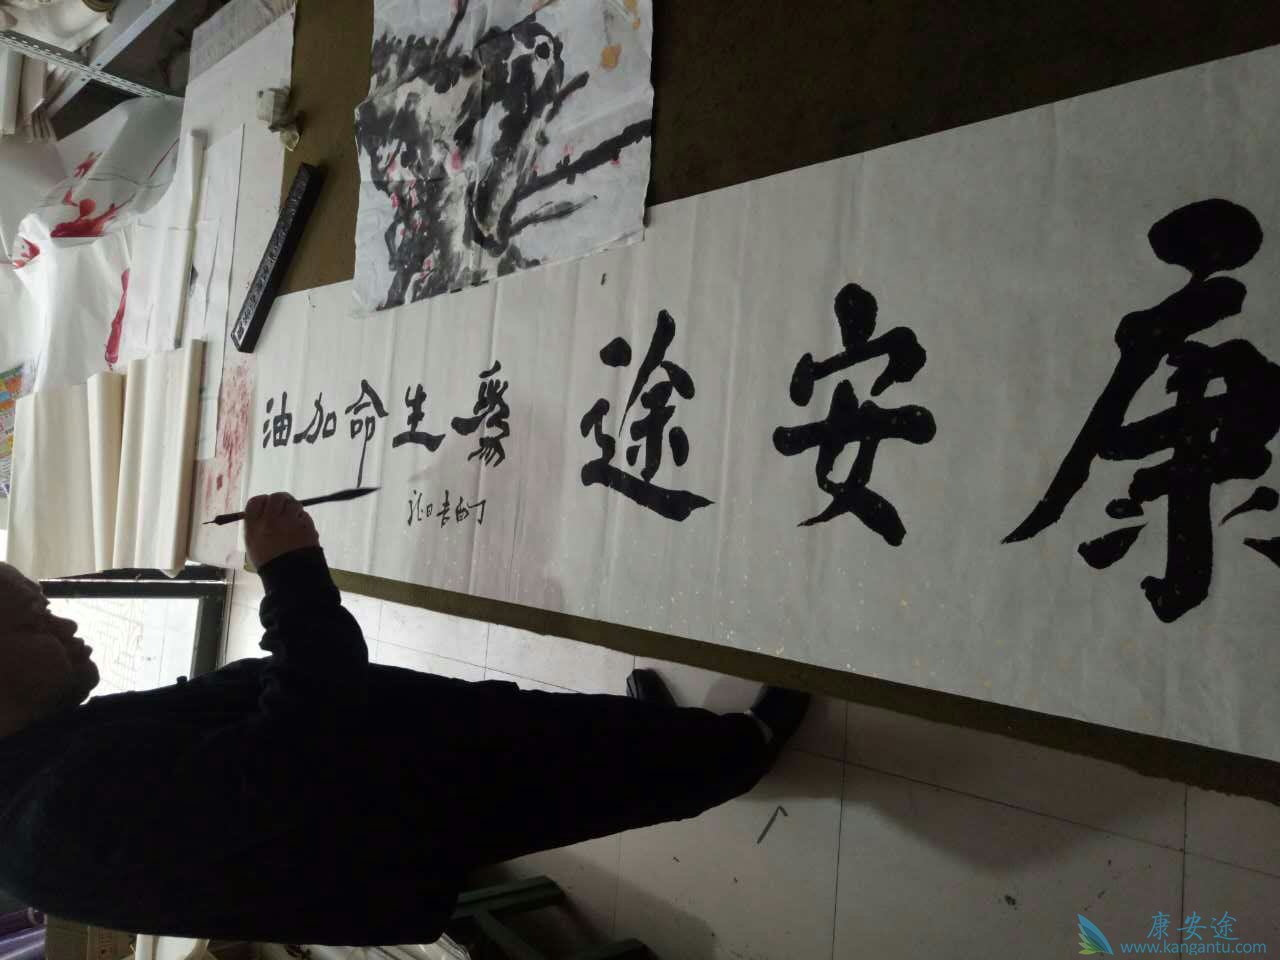 康安途
爲生命加油
丁酉吉日
康安途
www.kangantu.com